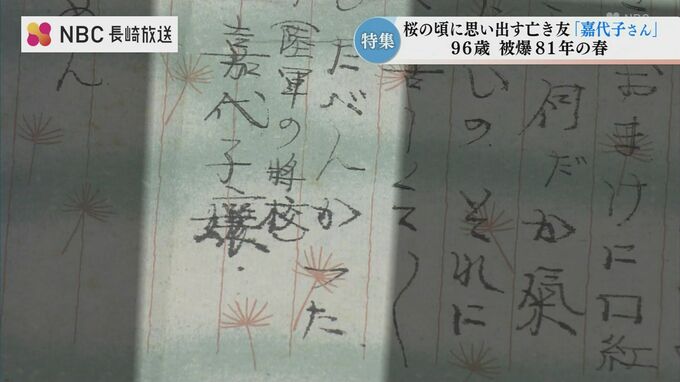 NBC 長崎放送
特集
桜の頃に思い出す亡き友「嘉代子さん」
96歳 被爆81年の春
おまけに口紅
何だか氣
いの それに
たべんかった
(陸軍の将校)
嘉代子嬢.
めん